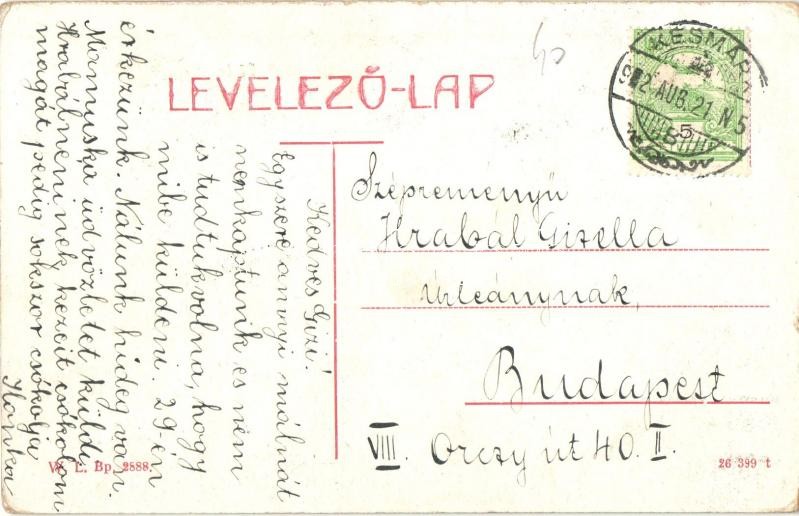 LEVELEZŐ-LAP
40
KÉSMÁRK
912 AUG. 21. N5
5
Kedves Gizi!
Egyszere annyi málnát
nem kaptunk es nem
is tudtuk volna, hogy
mibe küldeni. 29-én
érkezünk. Nálunk hideg van.
Mamuska üdvözletet küld,
Hrabál neninek kezeit csókolom
magát pedig sokszor csókolja
Ilonka
Szépreményü
Hrabál Gisella
Úrleánynak,
Budapest
VIII. Orczy út 40. II.
W. L. Bp. 2888.
26 399 t